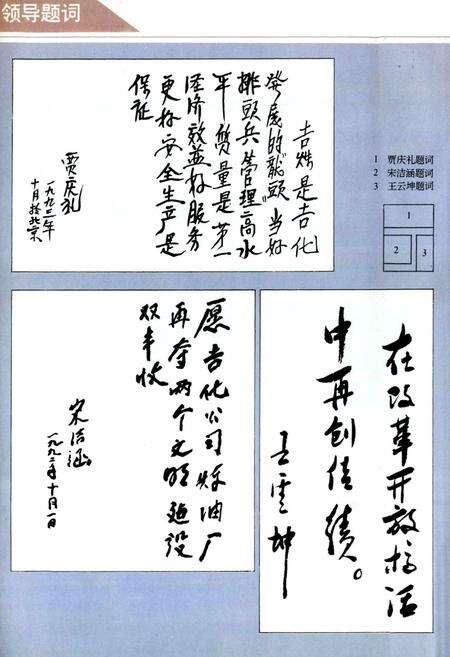 领导题词
吉炼是吉化
發展的“龍頭”当好
排頭兵管理高水
平质量是第一
经济效益好服务
更好安全生产是
保证
贾庆礼
一九九三年
十月於北京
1 贾庆礼题词
2 宋洁涵题词
3 王云坤题词
1
2
3
愿吉化公司炼油厂
再夺两个文明建设
双丰收
宋洁涵
一九九二年十月一日
在改革开放搞活
中再创佳绩。
王雲坤